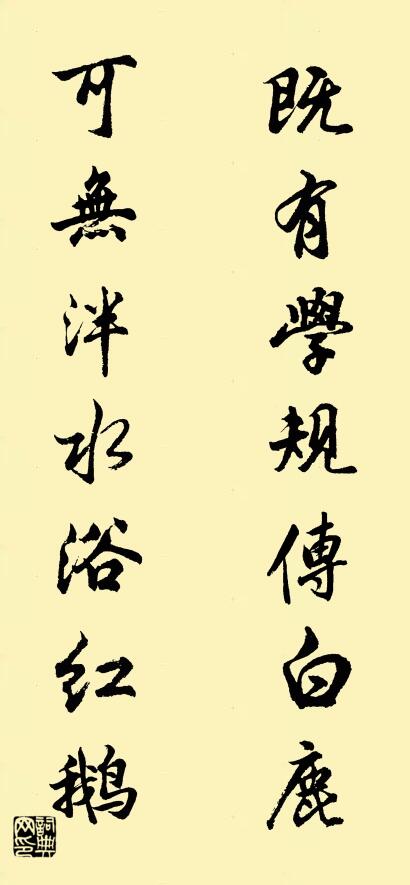 既有學規傳白鹿
可無泮水浴红鹅
詞典网印